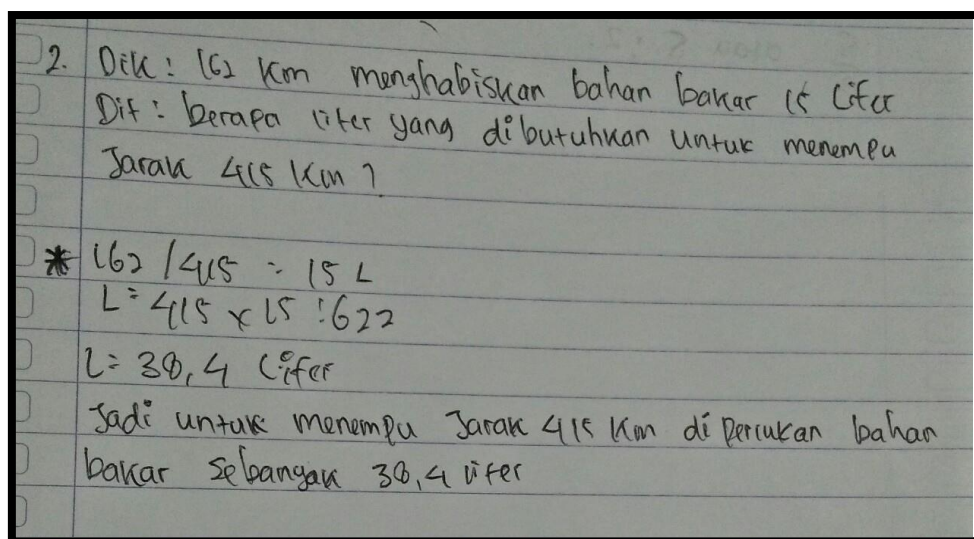 2. Dik: 162 km menghabiskan bahan bakar 15 liter
Dit: berapa liter yang dibutuhkan untuk menempu
Jarak 415 km?
* 162 / 415 = 15 L
L = 415 x 15 : 622
L = 38,4 liter
Jadi untuk menempu Jarak 415 km diperlukan bahan
bakar sebanyak 38,4 liter